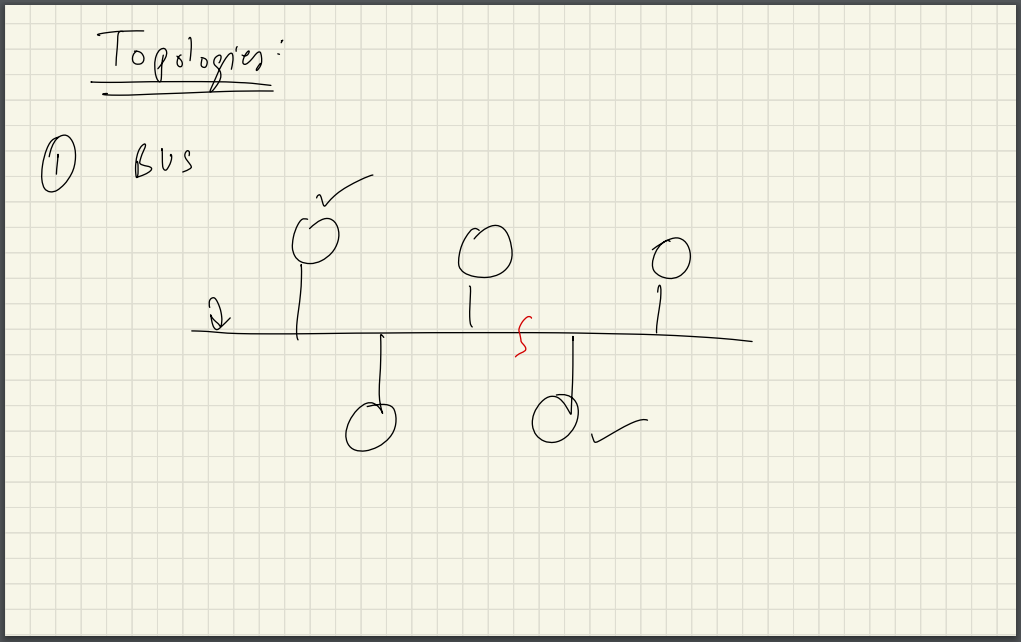 Topologies:
① BUS